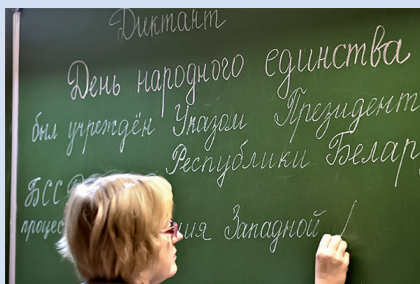 Диктант
День народного единства
был учреждён Указом Президент
Республики Белар
БССР
процес ия Западной